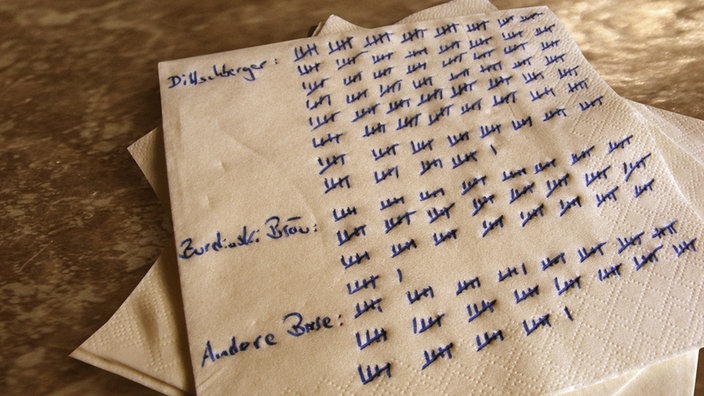 Dittschberger:
Burdinski Bräu:
Andere Biere: